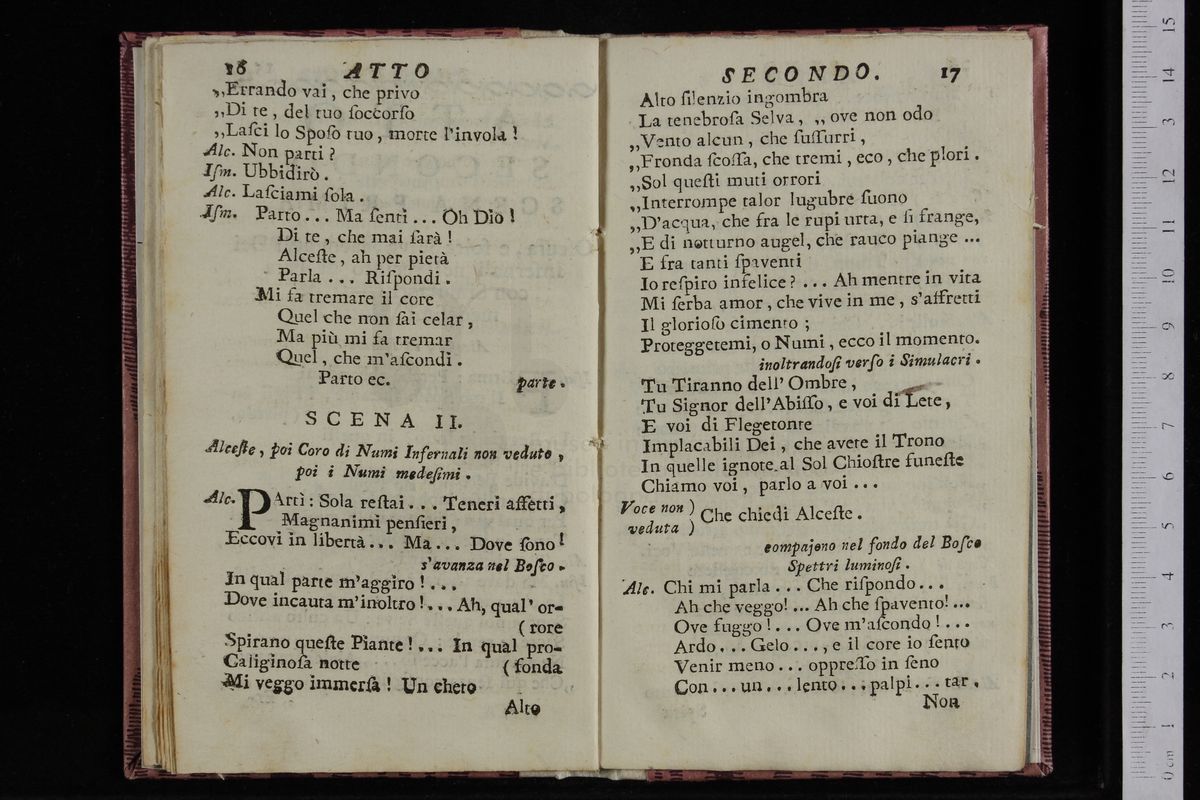 16 ATTO
„Errando vai, che privo
„Di te, del tuo ſoccorſo
„Laſci lo Spoſo tuo, morte l'invola!
Alc. Non parti?
Iſm. Ubbidirò.
Alc. Laſciami ſola.
Iſm. Parto... Ma ſenti... Oh Dio!
Di te, che mai ſarà!
Alceſte, ah per pietà
Parla... Riſpondi.
Mi fa tremare il core
Quel che non ſai celar,
Ma più mi fa tremar
Quel, che m'aſcondi.
Parto ec. parte.
SCENA II.
Alceſte, poi Coro di Numi Infernali non veduto,
poi i Numi medeſimi.
Alc. PArtì: Sola reſtai... Teneri affetti,
Magnanimi penſieri,
Eccovi in libertà... Ma... Dove ſono!
s'avanza nel Boſco.
In qual parte m'aggiro!...
Dove incauta m'inoltro!... Ah, qual' or-
(rore
Spirano queſte Piante!... In qual pro-
Caliginoſa notte (fonda
Mi veggo immerſa! Un cheto
Alto
SECONDO. 17
Alto ſilenzio ingombra
La tenebroſa Selva, „ ove non odo
„Vento alcun, che ſuſſurri,
„Fronda ſcoſſa, che tremi, eco, che plori.
„Sol queſti muti orrori
„Interrompe talor lugubre ſuono
„D'acqua, che fra le rupi urta, e ſi frange,
„E di notturno augel, che rauco piange...
E fra tanti ſpaventi
Io reſpiro infelice?... Ah mentre in vita
Mi ſerba amor, che vive in me, s'affretti
Il glorioſo cimento;
Proteggetemi, o Numi, ecco il momento.
inoltrandoſi verſo i Simulacri.
Tu Tiranno dell' Ombre,
Tu Signor dell'Abiſſo, e voi di Lete,
E voi di Flegetonte
Implacabili Dei, che avete il Trono
In quelle ignote al Sol Chioſtre funeſte
Chiamo voi, parlo a voi...
Voce non ) Che chiedi Alceſte.
veduta )
compajono nel fondo del Boſco
Spettri luminoſi.
Alc. Chi mi parla... Che riſpondo...
Ah che veggo!... Ah che ſpavento!...
Ove fuggo!... Ove m'aſcondo!...
Ardo... Gelo..., e il core io ſento
Venir meno... oppreſſo in ſeno
Con... un... lento... palpi... tar.
Non